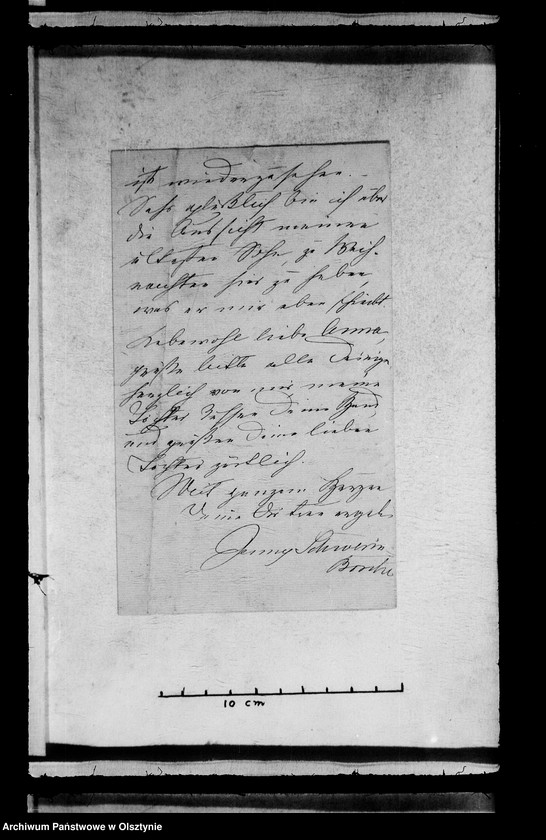 ist wiederzusehen. –
Sehr glücklich bin ich über
die Aussicht meinen
ältesten Sohn, zu Weih-
nachten hier zu haben,
was er mir eben schreibt
Lebewohl liebe Anna,
grüße bitte alle Deinigen
herzlich von mir meine
Töchter küssen Deine Hand
und grüßen Deine lieben
Töchter zärtlich.
Mit ganzem Herzen
Deine Dir treu ergeb.
Jenny Schwerin
Borcke
10 cm
Archiwum Państwowe w Olsztynie